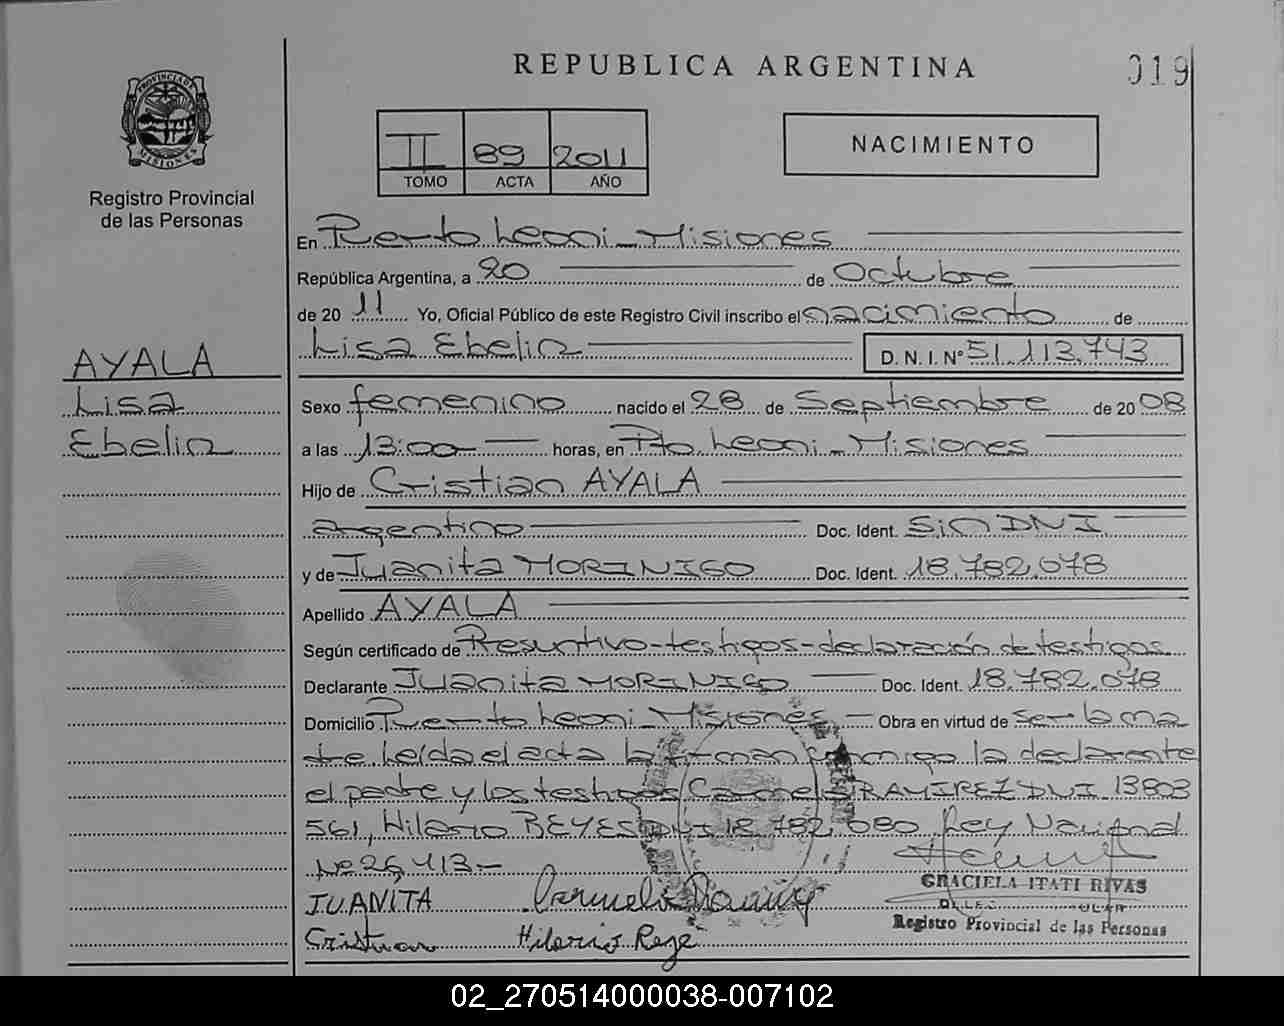 REPUBLICA ARGENTINA
019
PROVINCIA DE MISIONES
Registro Provincial
de las Personas
II 89 2011
TOMO ACTA AÑO
NACIMIENTO
En Puerto Leoni - Misiones
República Argentina, a 20 de Octubre
de 2011 Yo, Oficial Público de este Registro Civil inscribo el nacimiento de
Lisa Ebelin D. N. I. Nº 51.113.743
AYALA
Lisa
Ebelin
Sexo femenino nacido el 28 de Septiembre de 2008
a las 13:00 horas, en Pto. Leoni - Misiones
Hijo de Cristian AYALA
argentino Doc. Ident. Sin DNI.
y de Juanita MORINIGO Doc. Ident. 18.782.078
Apellido AYALA
Según certificado de Presuntivo-testigos-declaración de testigos
Declarante Juanita MORINIGO Doc. Ident. 18.782.078
Domicilio Puerto Leoni - Misiones - Obra en virtud de ser la ma
dre. Leída el acta la firman conmigo la declarante
el padre y los testigos Carmelo RAMIREZ DNI 13803
561, Hilario REYES DNI 18.782.080. Ley Nacional
Nº 26.413-
JUANITA Carmelo Ramirez
Cristian Hilario Reye
GRACIELA ITATI RIVAS
Registro Provincial de las Personas
02_270514000038-007102